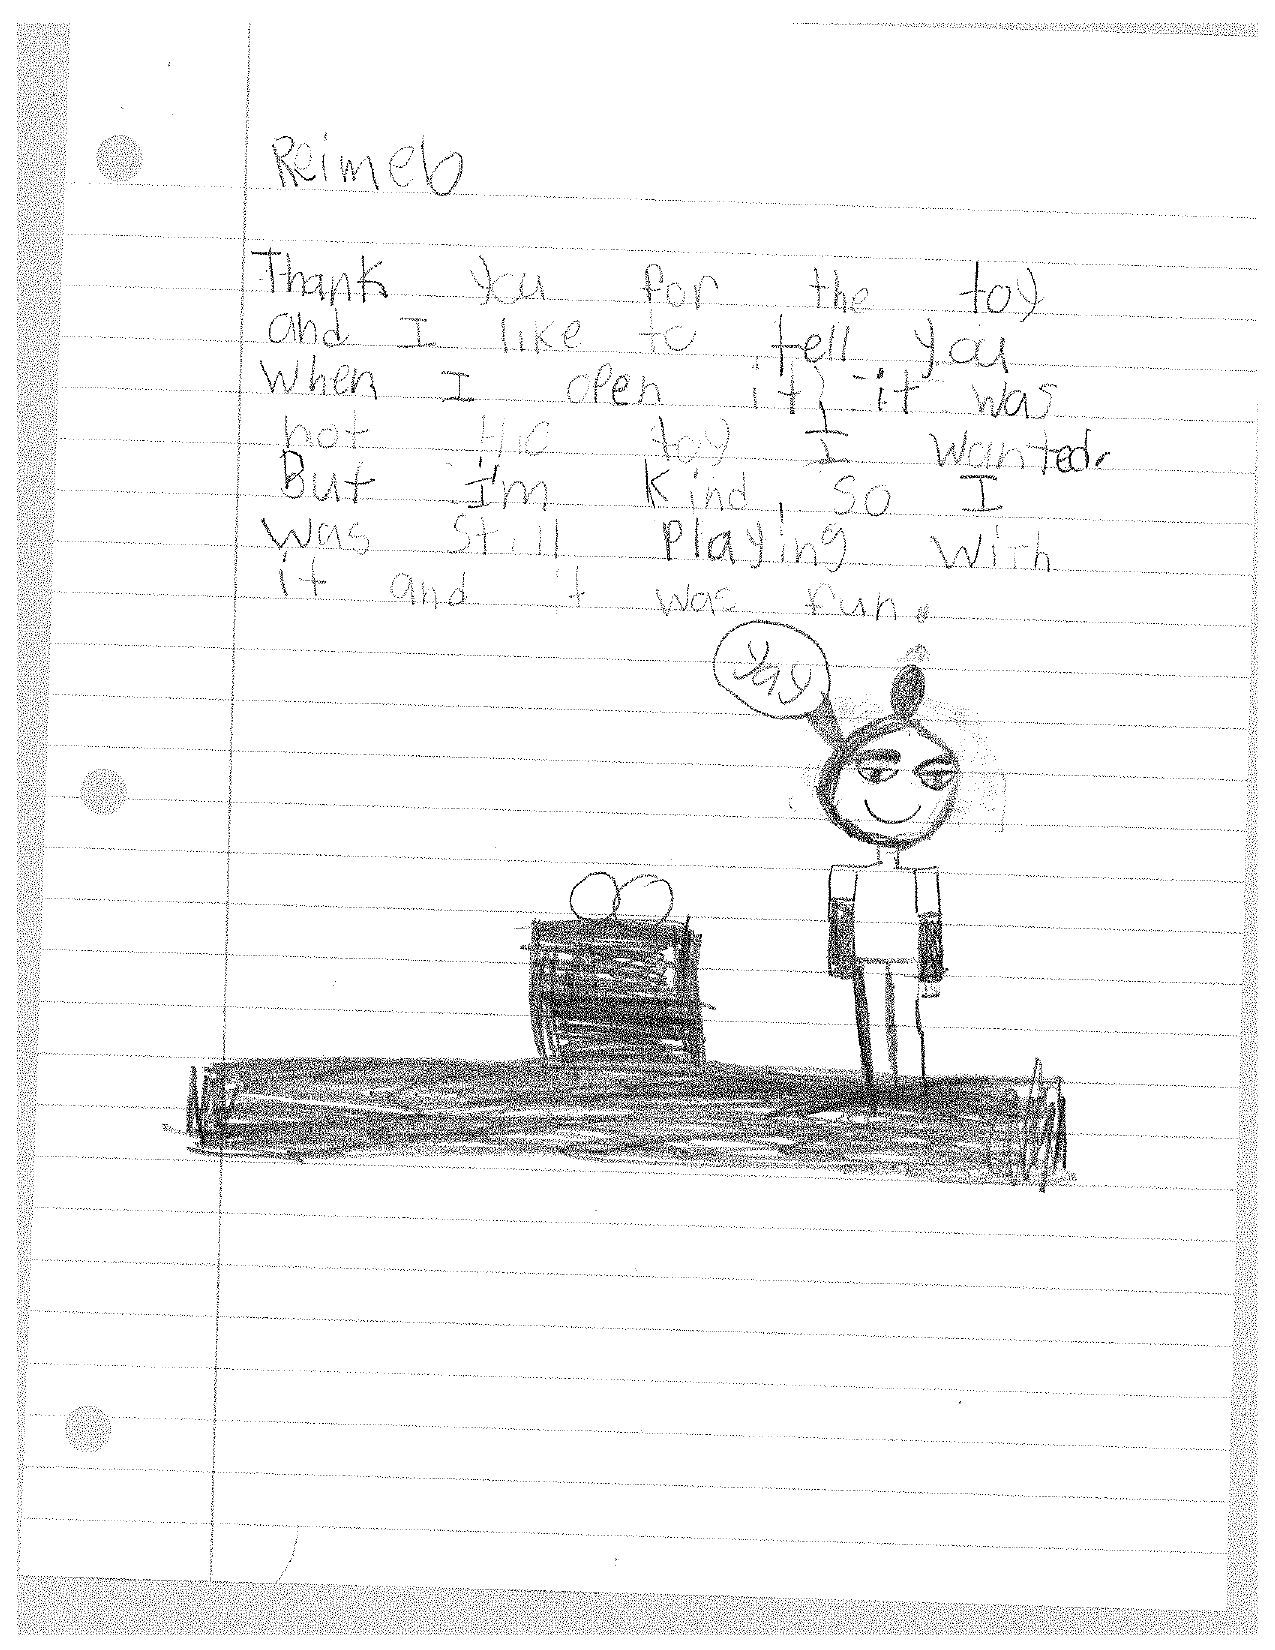 Reimeb
Thank you for the toy
and I like to tell you
when I open it, it was
not the toy I wanted.
But I'm kind, so I
was still playing with
it and it was fun.
yay